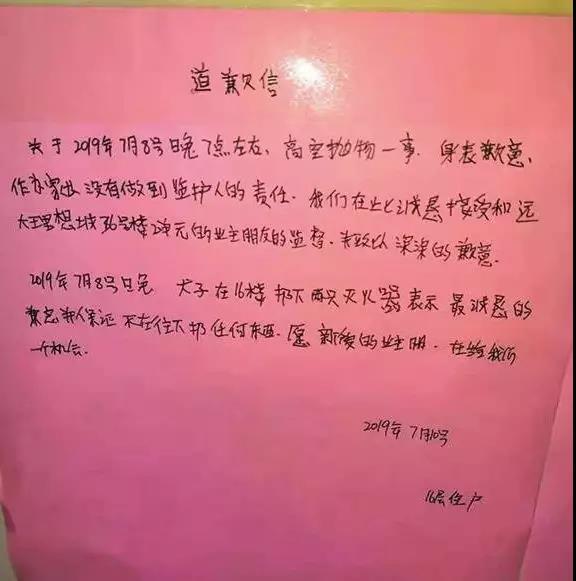 道歉信
关于2019年7月8号日晚7点左右、高空抛物一事. 身表歉意,
作为家长没有做到监护人的责任. 我们在此诚恳接受和远
大理想城36号楼2单元的业主朋友的监督. 并致以深深的歉意.
2019年7月8号日晚 犬子在16楼扔下两只灭火器表示最诚恳的
歉意并保证不在往下扔任何东西. 愿接受的业主朋. 在给我们
一个机会.
2019年7月10号
16层住户